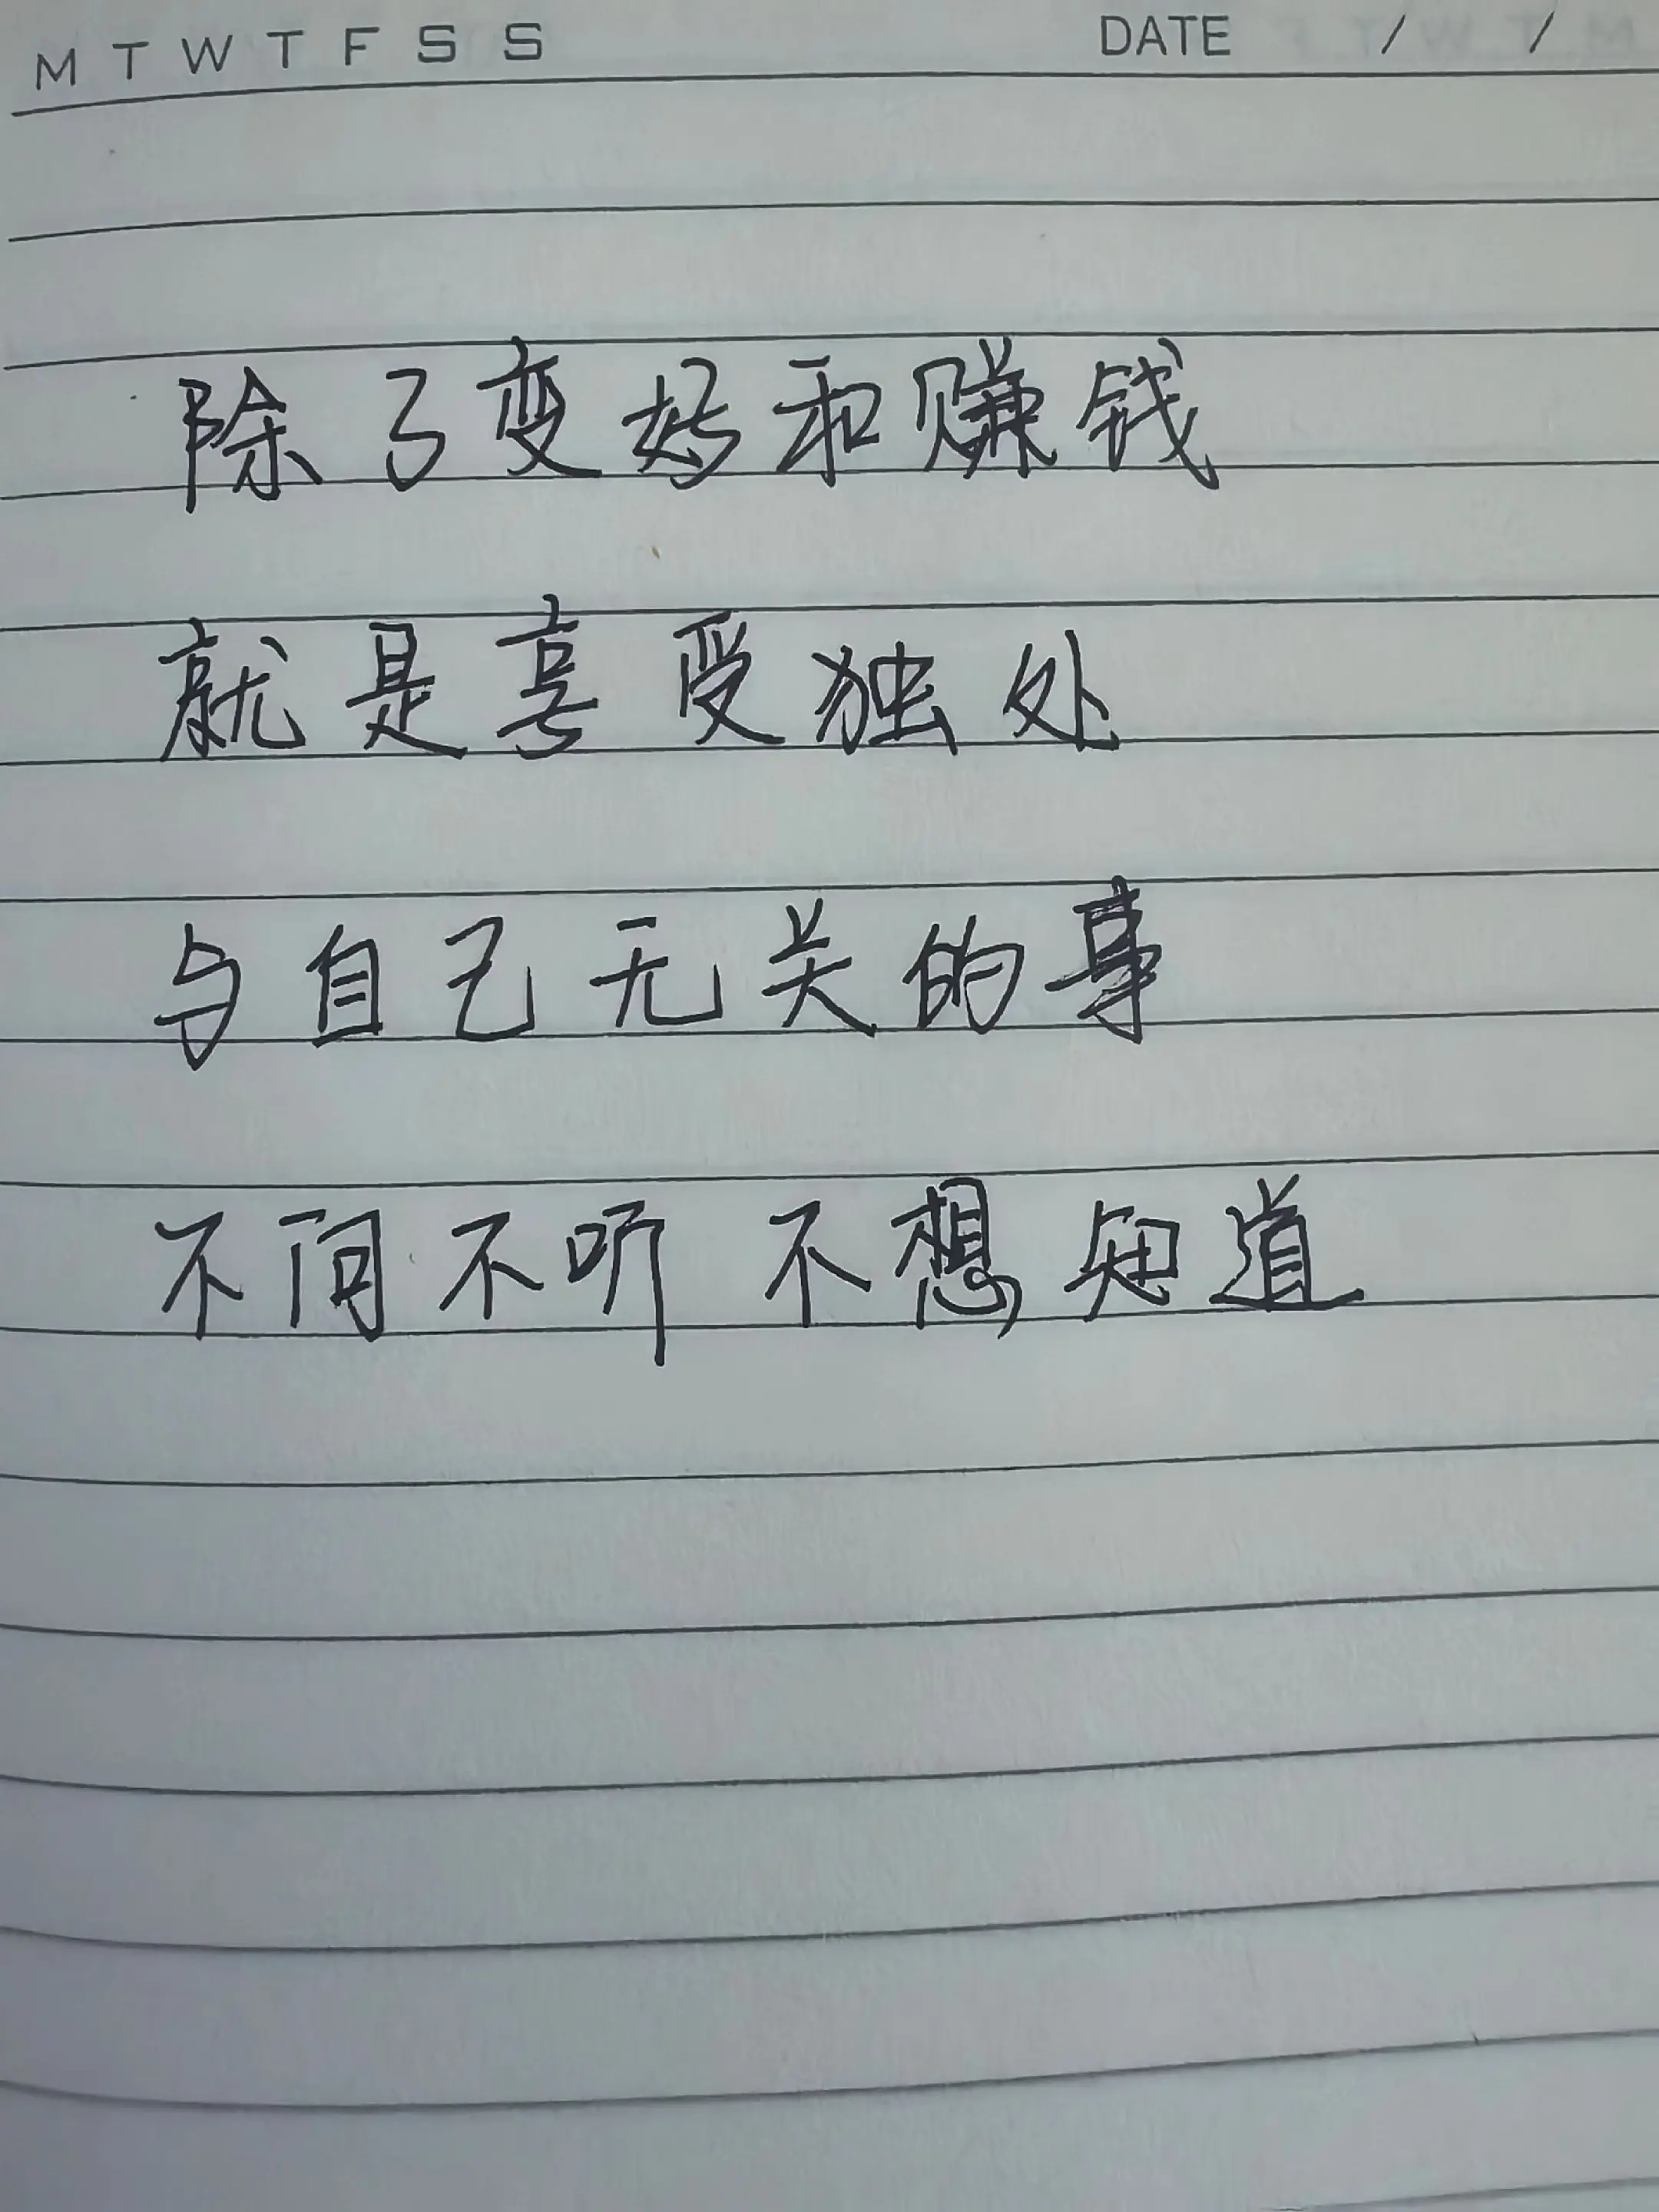 M T W T F S S DATE / /
除了变好和赚钱
就是享受独处
与自己无关的事
不问不听 不想知道